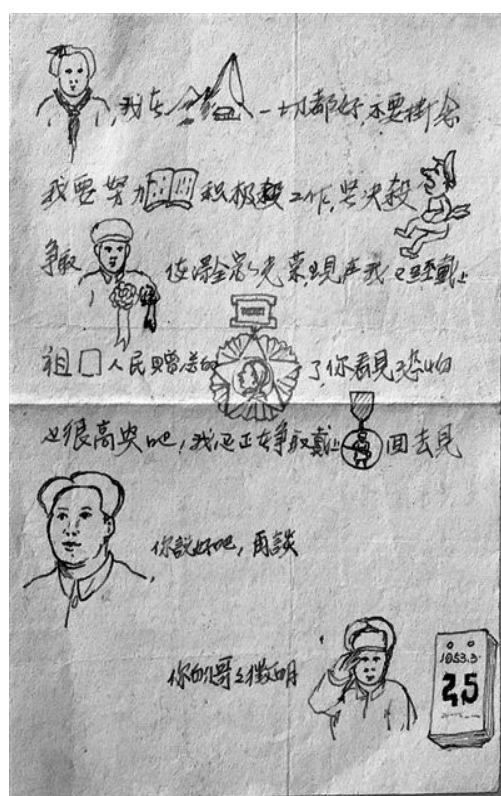 ,我在一切都好,不要掛念
我要努力积极工作,坚决殺
争取全家光荣,現在我已經戴上
祖囗人民贈送的了你看見恐怕
也很高兴吧,我还正在争取戴上回去見
你說好吧,再談
你的哥々徵明
1953.3
25